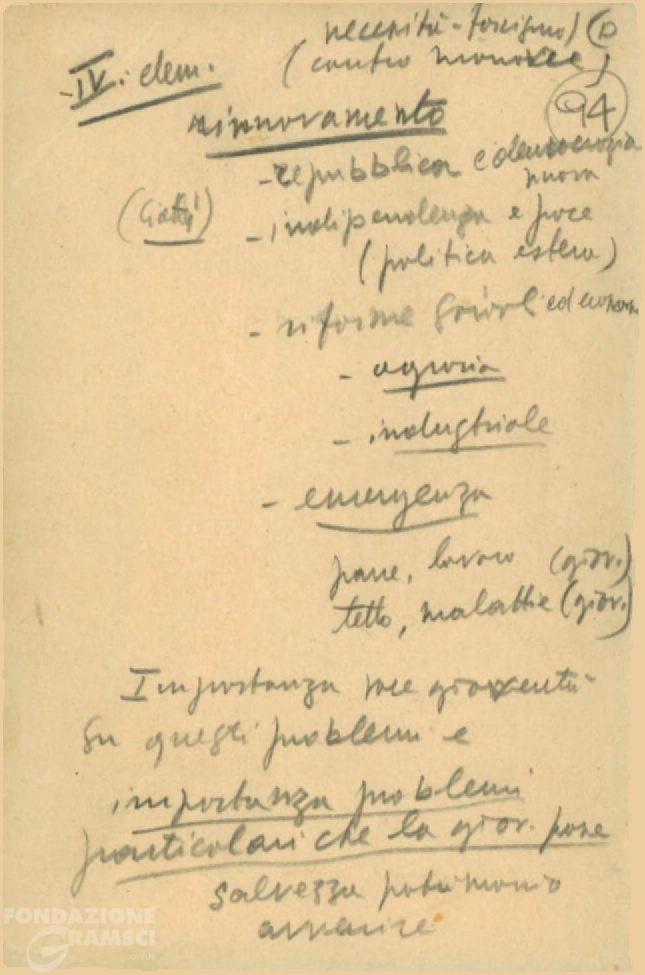 necessità - fascismo)
(contro monarchie)
- IV. elem.
94
rinnovamento
- repubblica e democrazia
nuova
- indipendenza e pace
(politica estera)
- riforme sociali ed econom
- agraria
- industriale
- emergenza
pane, lavoro (giov.)
tetto, malattie (giov.)
Importanza voce gioventù
su questi problemi e
importanza problemi
particolari che la giov. pone
salvezza patrimonio
avvenire
FONDAZIONE
GRAMSCI
onlus